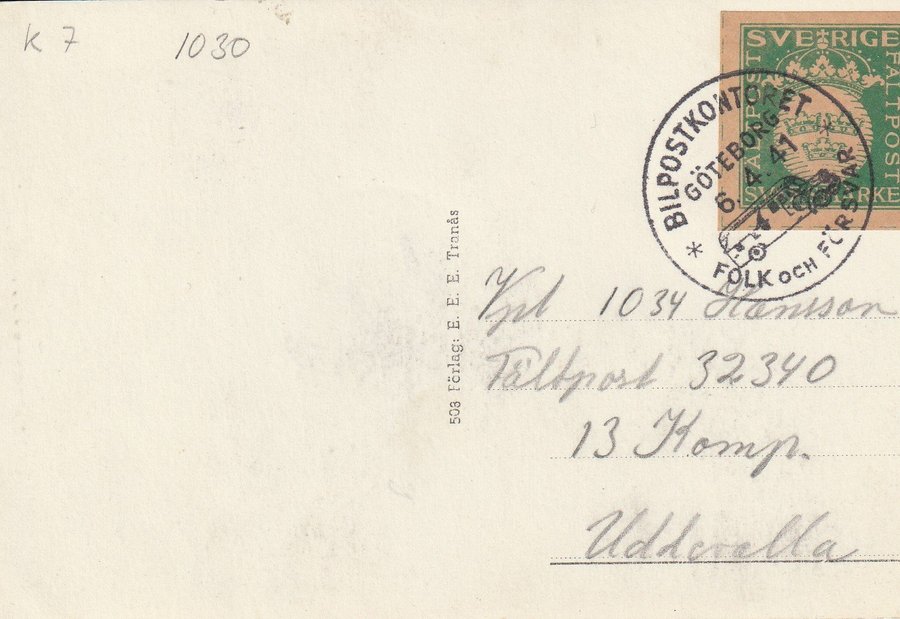 K 7
1030
SVERIGE
FÄLTPOST
FÄLTPOST
SVARSMÄRKE
* BILPOSTKONTORET
GÖTEBORG
6.4.41
FOLK OCH FÖRSVAR
503 Förlag: E. E. E. Tranås
Vpl 1034 Hansson
Fältpost 32340
13 Komp.
Uddevalla